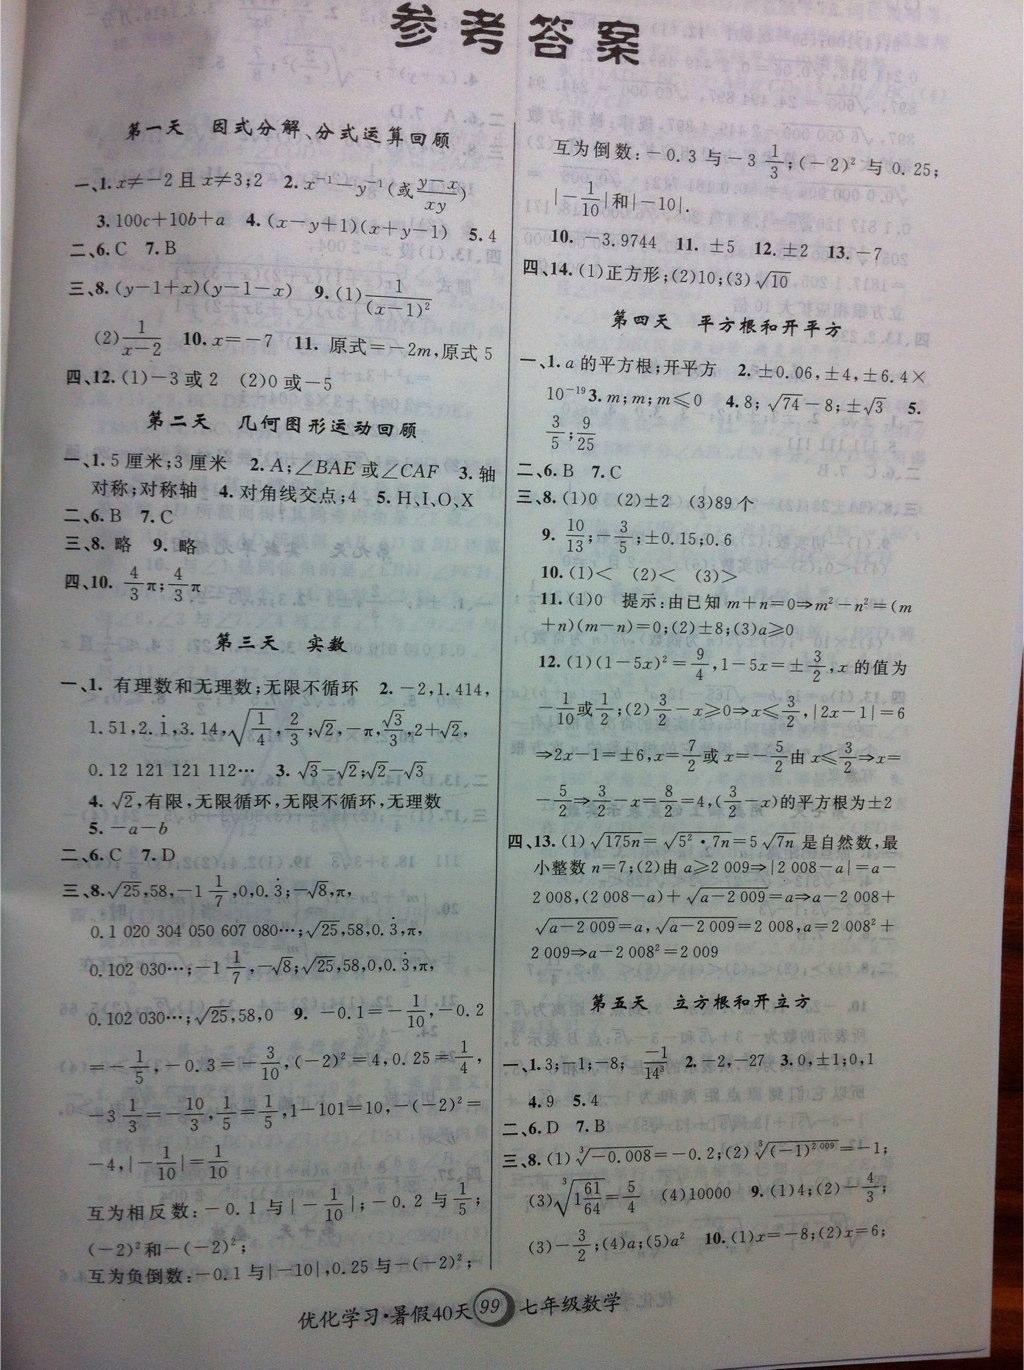 参考答案
第一天 因式分解、分式运算回顾
一、1.x≠-2且x≠3;2 2.x⁻¹-y⁻¹(或(y-x)/(xy))
3.100c+10b+a 4.(x-y+1)(x+y-1) 5.4
二、6.C 7.B
三、8.(y-1+x)(y-1-x) 9.(1)1/(x-1)²
(2)1/(x-2) 10.x=-7 11. 原式=-2m,原式5
四、12.(1)-3或2 (2)0或-5
第二天 几何图形运动回顾
一、1.5厘米;3厘米 2.A;∠BAE或∠CAF 3.轴
对称;对称轴 4.对角线交点;4 5.H、I、O、X
二、6.B 7.C
三、8.略 9.略
四、10. 4/3π;4/3π
第三天 实数
一、1. 有理数和无理数;无限不循环 2.-2,1.414,
1.51,2.1̇,3.14,√(1/4),2/3;√2,-π,√3/3,2+√2,
0.12 121 121 112… 3.√3-√2;√2-√3
4.√2,有限,无限循环,无限不循环,无理数
5.-a-b
二、6.C 7.D
三、8.√25,58,-1 1/7,0,0.3̇;-√8,π,
0.1 020 304 050 607 080…;√25,58,0.3̇,π,
0.102 030…;-1 1/7,-√8;√25,58,0,0.3̇,π,
0.102 030…;√25,58,0 9. -0.1=-1/10,-0.2
=-1/5,-0.3=-3/10,(-2)²=4,0.25=1/4,
-3 1/3=-10/3,1/5=1/5,1-101=10,-(-2)²=
-4,|-1/10|=1/10
互为相反数:-0.1与|-1/10|;-0.2与1/5;
(-2)²和-(-2)²;
互为负倒数:-0.1与|-10|,0.25与-(-2)²;
互为倒数:-0.3与-3 1/3;(-2)²与0.25;
|-1/10|和|-10|.
10.-3.9744 11.±5 12.±2 13.-7
四、14.(1)正方形;(2)10;(3)√10
第四天 平方根和开平方
一、1.a的平方根;开平方 2.±0.06,±4,±6.4×
10⁻¹⁹3.m;m;m⩽0 4.8;√74-8;±√3 5.
3/5;9/25
二、6.B 7.C
三、8.(1)0 (2)±2 (3)89个
9. 10/13;-3/5;±0.15;0.6
10.(1)< (2)< (3)>
11.(1)0 提示:由已知m+n=0⇒m²-n²=(m
+n)(m-n)=0;(2)±8;(3)a⩾0
12.(1)(1-5x)²=9/4,1-5x=±3/2,x的值为
-1/10或1/2;(2)3/2-x⩾0⇒x⩽3/2,|2x-1|=6
⇒2x-1=±6,x=7/2或x=-5/2由x⩽3/2⇒x=
-5/2⇒3/2-x=8/2=4,(3/2-x)的平方根为±2
四、13.(1)√175n=√(5²·7n)=5√7n是自然数,最
小整数n=7;(2)由a⩾2 009⇒|2 008-a|=a-
2 008,(2 008-a)+√(a-2 009)=a⇒a-2 008+
√(a-2 009)=a,√(a-2 009)=2 008,a=2 008²+
2 009⇒a-2 008²=2 009
第五天 立方根和开立方
一、1.3;-1;-8; -1/14³ 2.-2,-27 3.0,±1;0,1
4.9 5.4
二、6.D 7.B
三、8.(1)∛(-0.008)=-0.2;(2)∛((-1)^2 009)=-1;
(3)∛(1 61/64)=5/4 (4)10000 9.(1)4;(2)-4/3;
(3)-3/2;(4)a;(5)a² 10.(1)x=-8;(2)x=6;
优化学习·暑假40天 99 七年级数学